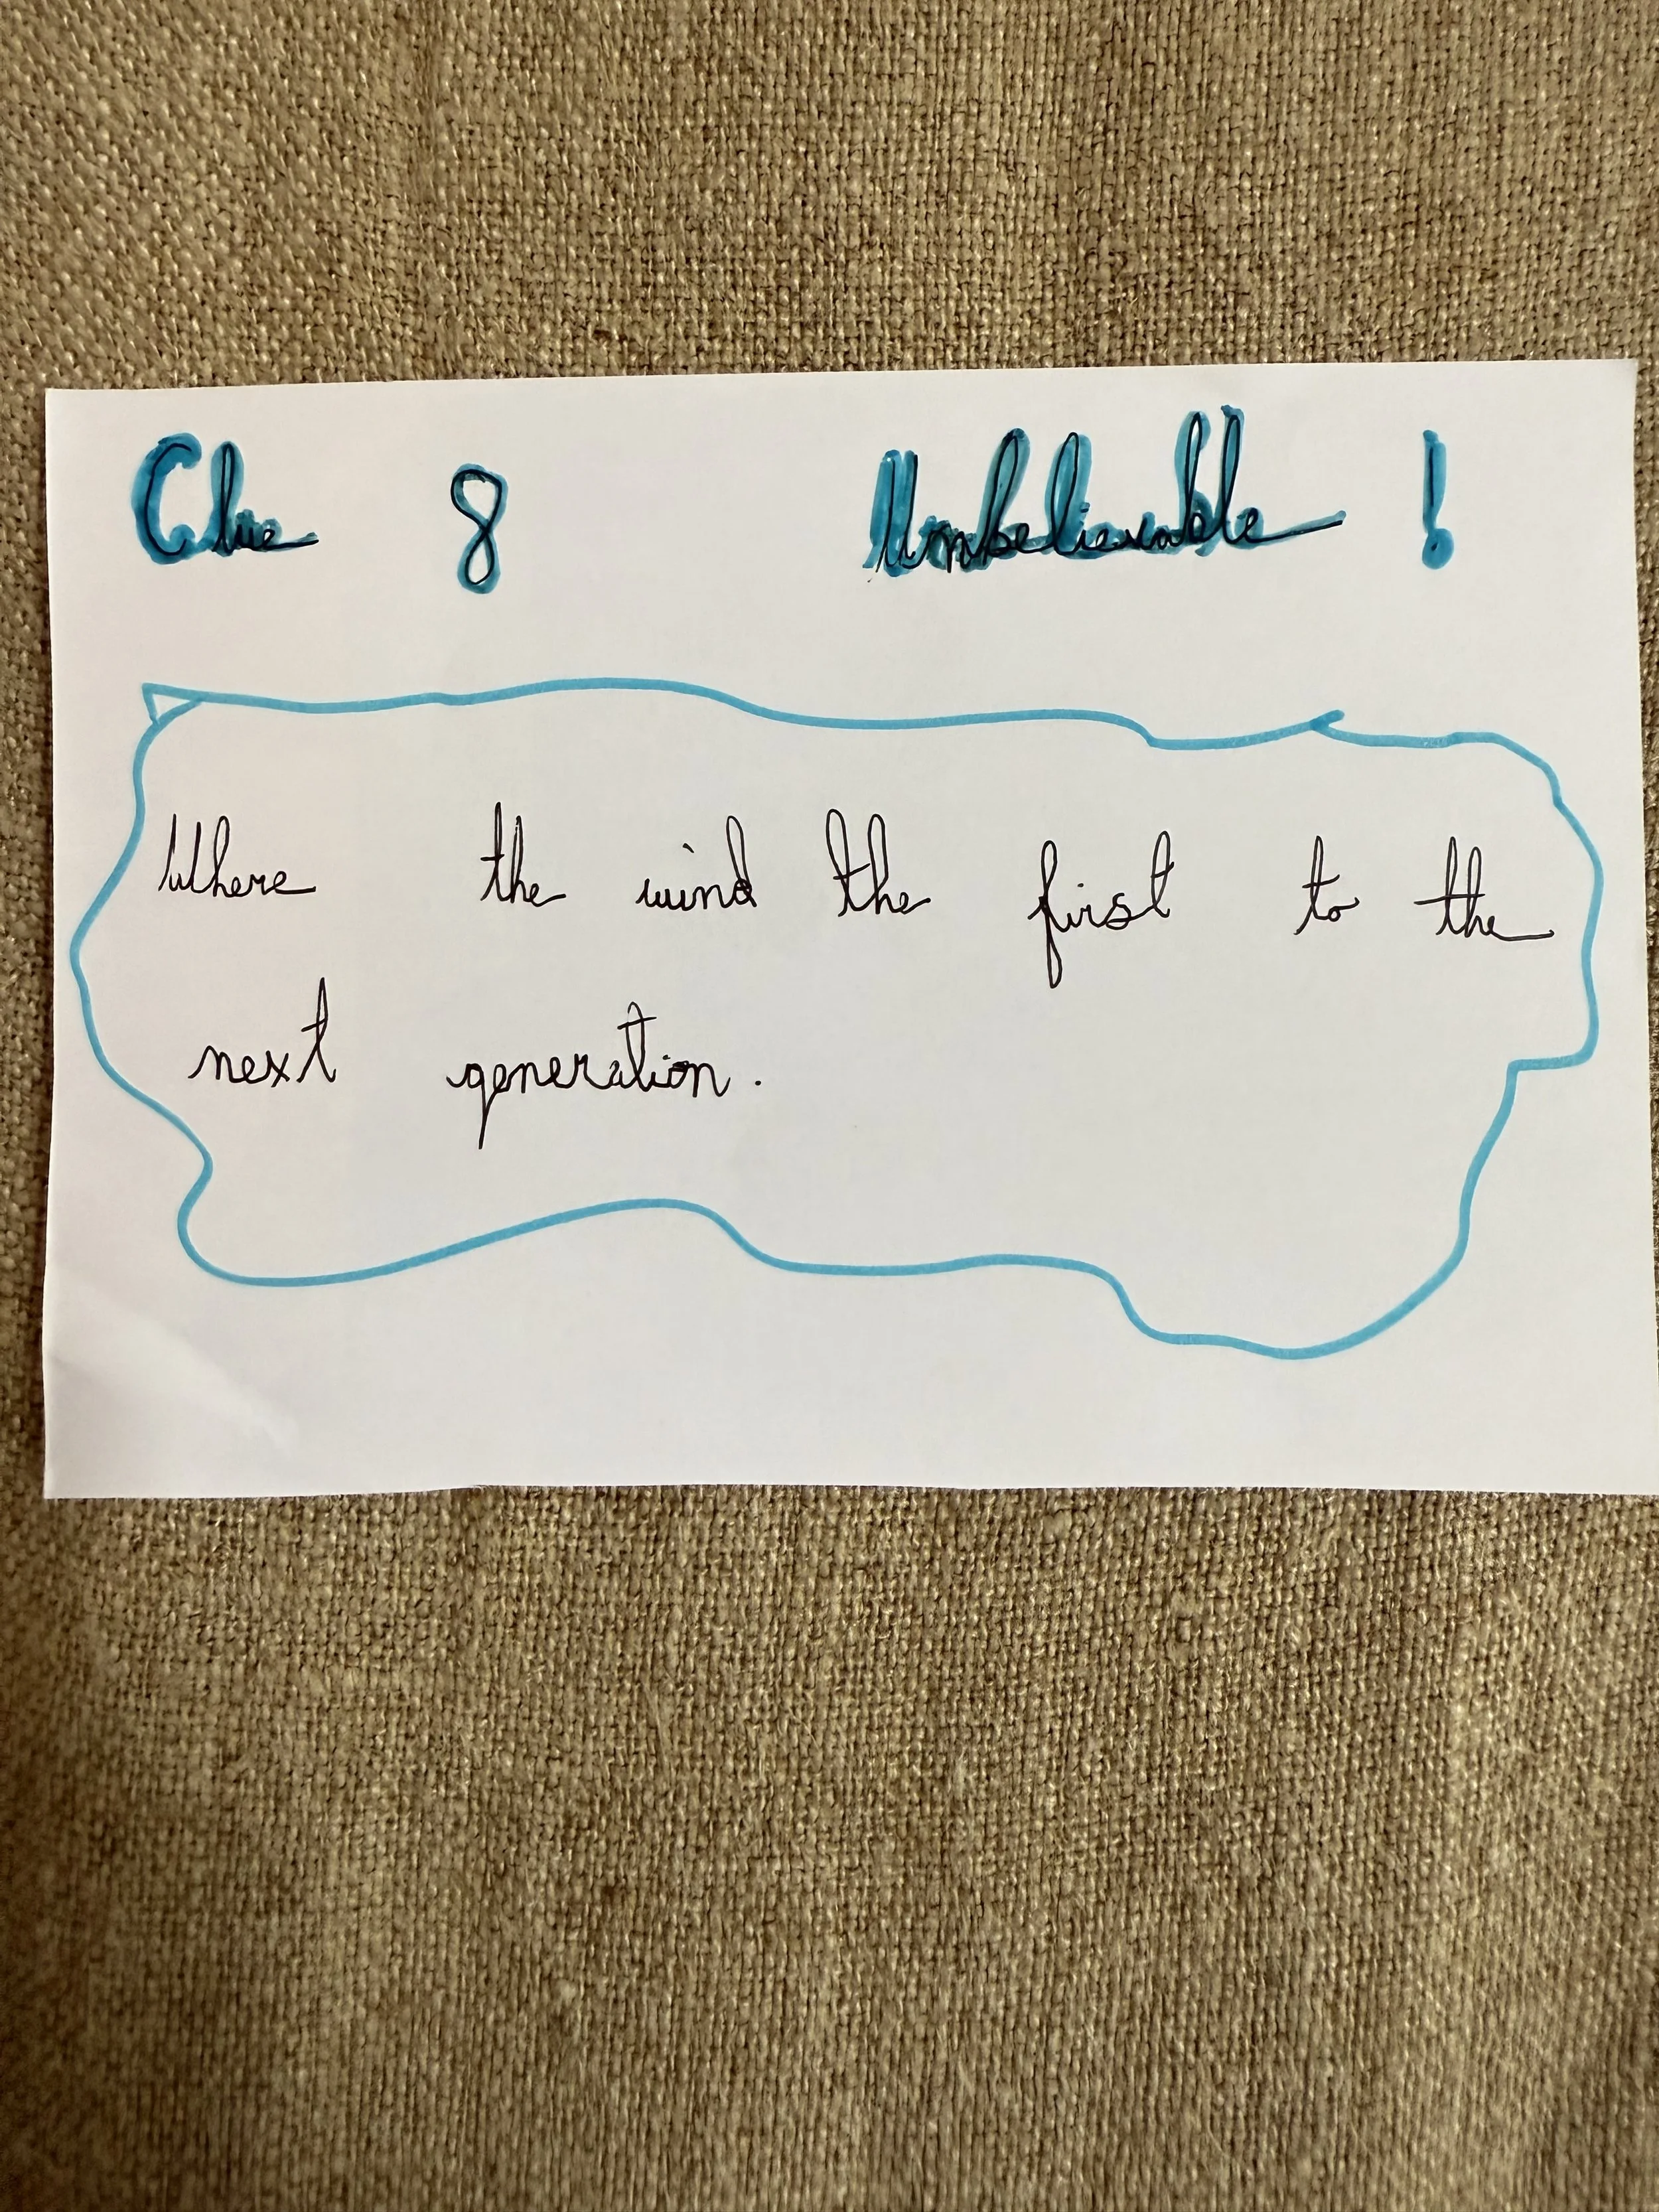 Clue 8 Unbelievable !
Where the wind the first to the
next generation.